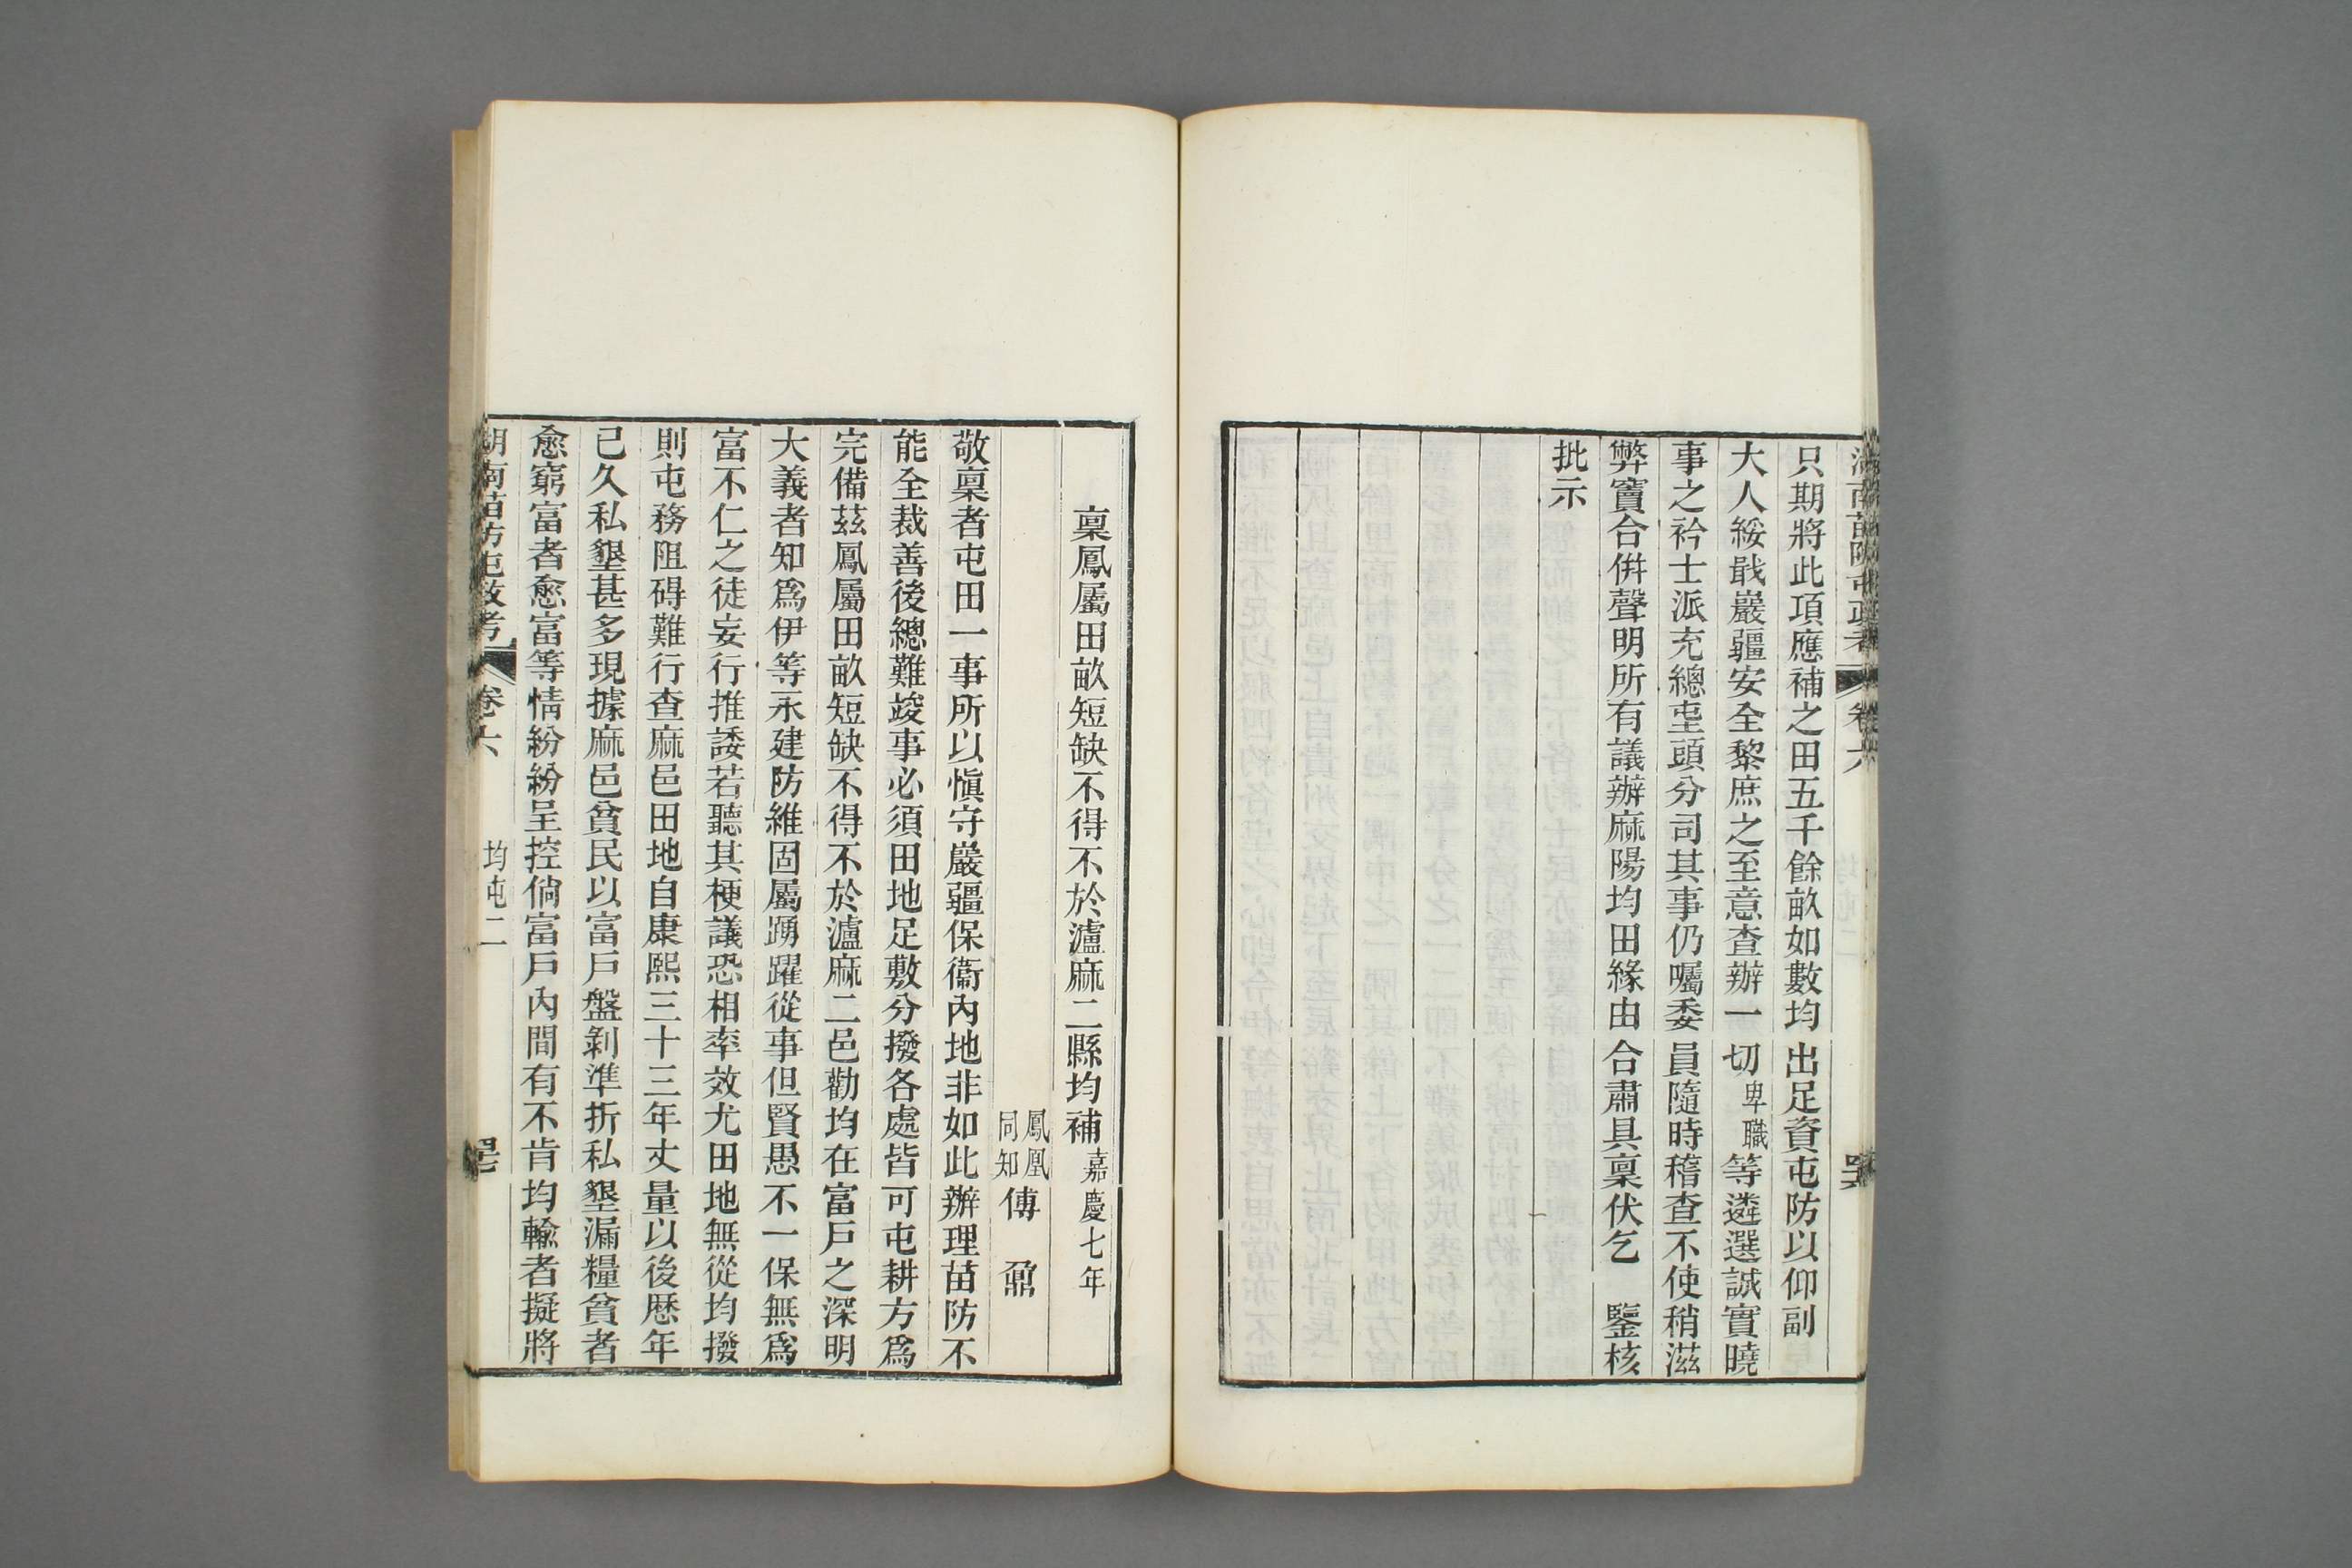 湖南苗防屯政考 卷六
只期將此項應補之田五千餘畝如數均出足資屯防以仰副
大人綏戢巖疆安全黎庶之至意查辦一切卑職等遴選誠實曉
事之衿士派充總屯頭分司其事仍囑委員隨時稽查不使稍滋
弊竇合倂聲明所有議辦麻陽均田緣由合肅具稟伏乞 鑒核
批示
稟鳳屬田畝短缺不得不於瀘麻二縣均補 嘉慶七年
鳳凰同知傅 鼐
敬稟者屯田一事所以愼守巖疆保衞內地非如此辦理苗防不
能全裁善後總難竣事必須田地足敷分撥各處皆可屯耕方爲
完備茲鳳屬田畝短缺不得不於瀘麻二邑勸均在富戶之深明
大義者知爲伊等永建防維固屬踴躍從事但賢愚不一保無爲
富不仁之徒妄行推諉若聽其梗議恐相率效尤田地無從均撥
則屯務阻碍難行查麻邑田地自康熙三十三年丈量以後歷年
已久私墾甚多現據麻邑貧民以富戶盤剝準折私墾漏糧貧者
愈窮富者愈富等情紛紛呈控倘富戶內間有不肯均輸者擬將
湖南苗防屯政考 卷六 均屯二